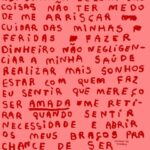 COISAS NÃO TER MEDO
DE ME ARRISCAR
CUIDAR DAS MINHAS
FERIDAS FAZER
DINHEIRO NÃO NEGLIGEN-
CIAR A MINHA SAÚDE
REALIZAR MAIS SONHOS
ESTAR COM QUEM FAZ
EU SENTIR QUE MEREÇO
SER AMADA ME RETI-
RAR QUANDO SENTIR
NECESSIDADE E ABRIR
OS MEUS BRAÇOS PRA
CHANCE DE SER